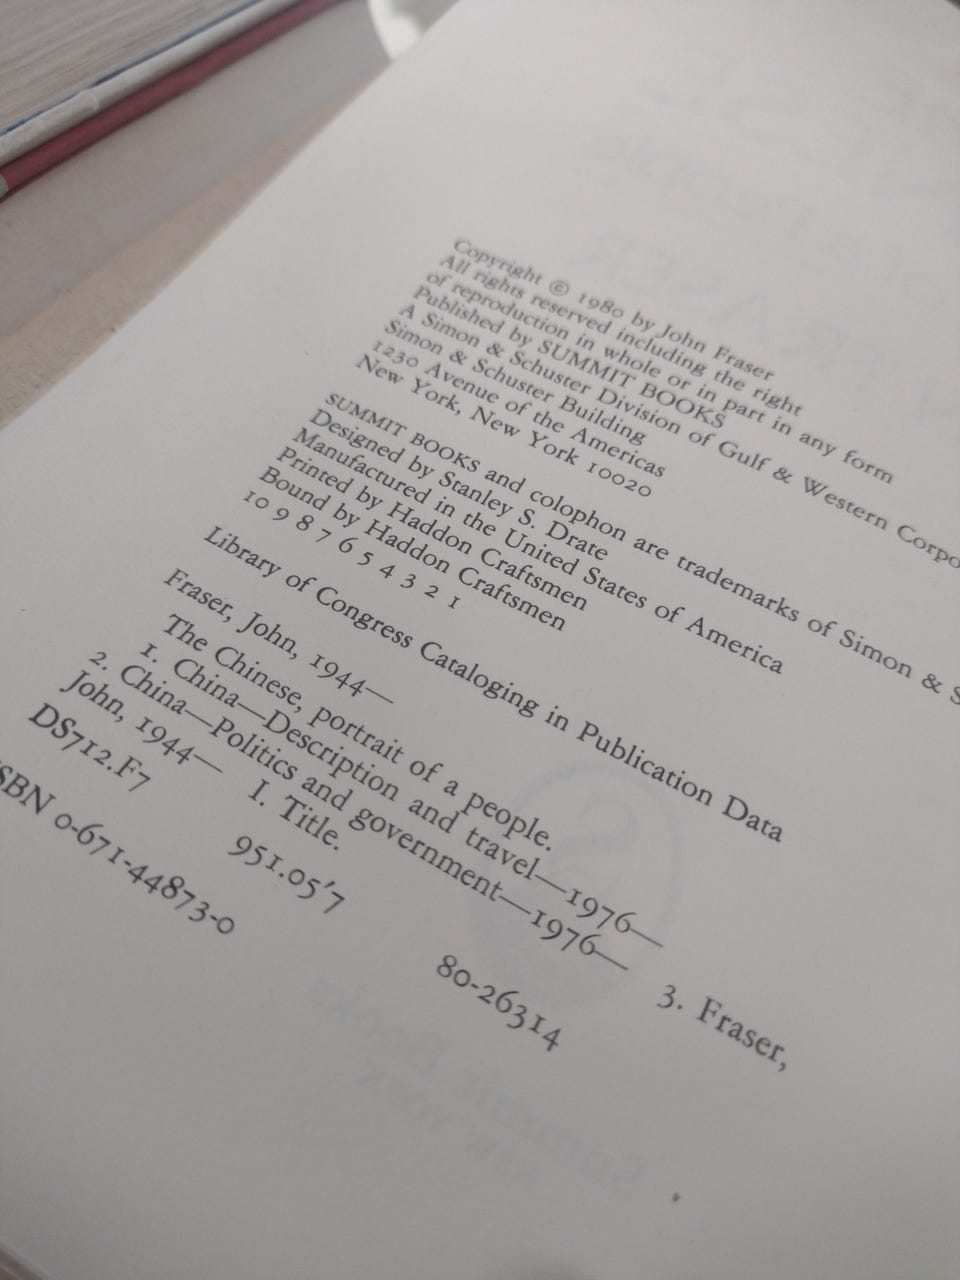 Copyright © 1980 by John Fraser
All rights reserved including the right
of reproduction in whole or in part in any form
Published by SUMMIT BOOKS
A Simon & Schuster Division of Gulf & Western Corpo
Simon & Schuster Building
1230 Avenue of the Americas
New York, New York 10020
SUMMIT BOOKS and colophon are trademarks of Simon & S
Designed by Stanley S. Drate
Manufactured in the United States of America
Printed by Haddon Craftsmen
Bound by Haddon Craftsmen
10 9 8 7 6 5 4 3 2 1
Library of Congress Cataloging in Publication Data
Fraser, John, 1944—
The Chinese, portrait of a people.
1. China—Description and travel—1976—
2. China—Politics and government—1976— 3. Fraser,
John, 1944— I. Title.
DS712.F7 951.05'7 80-26314
SBN 0-671-44873-0